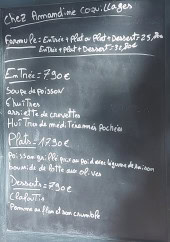 Chez Amandine Coquillages
Formule = Entrée + Plat ou Plat + Dessert = 25,
Entrée + plat + Dessert = 32,
Entrée = 7.90€
Soupe de poisson
6 huîtres
assiette de crevettes
Huitres de méditerranée pochées
Plats = 17.90€
Poisson grillé
légume de saison
de lotte aux olives
Desserts = 7.90€
Clafoutis
Pomme au four et son crumble